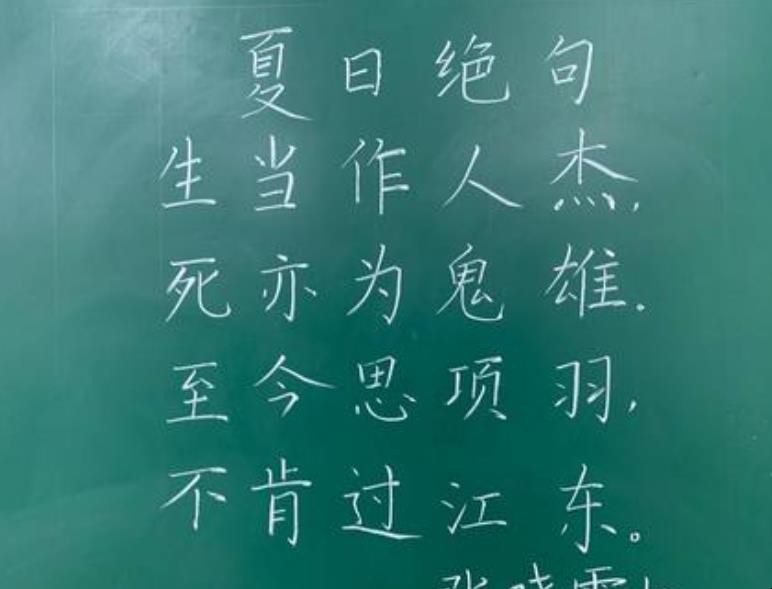 夏日绝句
生当作人杰,
死亦为鬼雄.
至今思项羽,
不肯过江东。